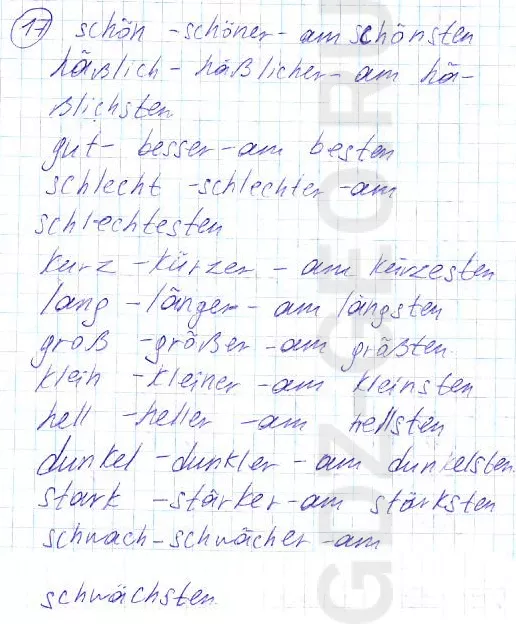 17 schön - schöner - am schönsten
häßlich - häßlicher - am hä-
ßlichsten
gut - besser - am besten
schlecht - schlechter - am
schlechtesten
kurz - kürzer - am kürzesten
lang - länger - am längsten
groß - größer - am größten
klein - kleiner - am kleinsten
hell - heller - am hellsten
dunkel - dunkler - am dunkelsten
stark - stärker - am stärksten
schwach - schwächer - am
schwächsten
GDZGEO.RU